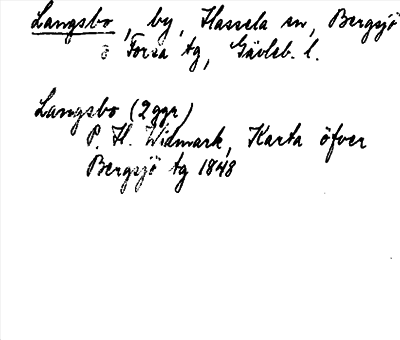 Langsbo, by, Hassela sn, Bergsjö
o Forsa tg, Gävleb. l.
Langsbo (2 ggr)
P. H. Widmark, Karta öfver
Bergsjö tg 1848